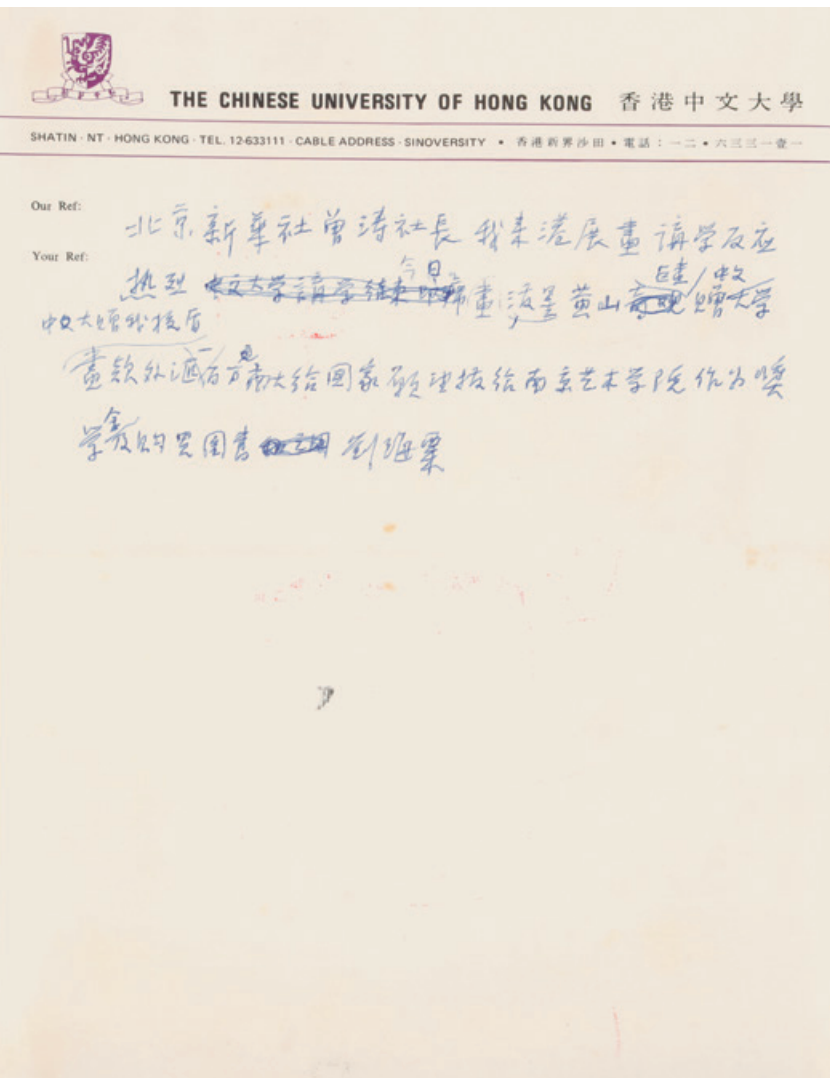 THE CHINESE UNIVERSITY OF HONG KONG 香港中文大學
SHATIN · NT · HONG KONG · TEL. 12-633111 · CABLE ADDRESS · SINOVERSITY • 香港新界沙田 • 電話：一二 • 六三三一壹一
Our Ref:
北京新華社曾涛社長 我来港展畫講学反应
Your Ref:
今日 巨畫 中文
热烈 中文大学講学結束 席畫泼墨黄山 贈大学
中文大贈我接后
畫款外汇一百万 给國家 願 拨给南京艺术学院作为奬
学金及购买图書 劉海粟